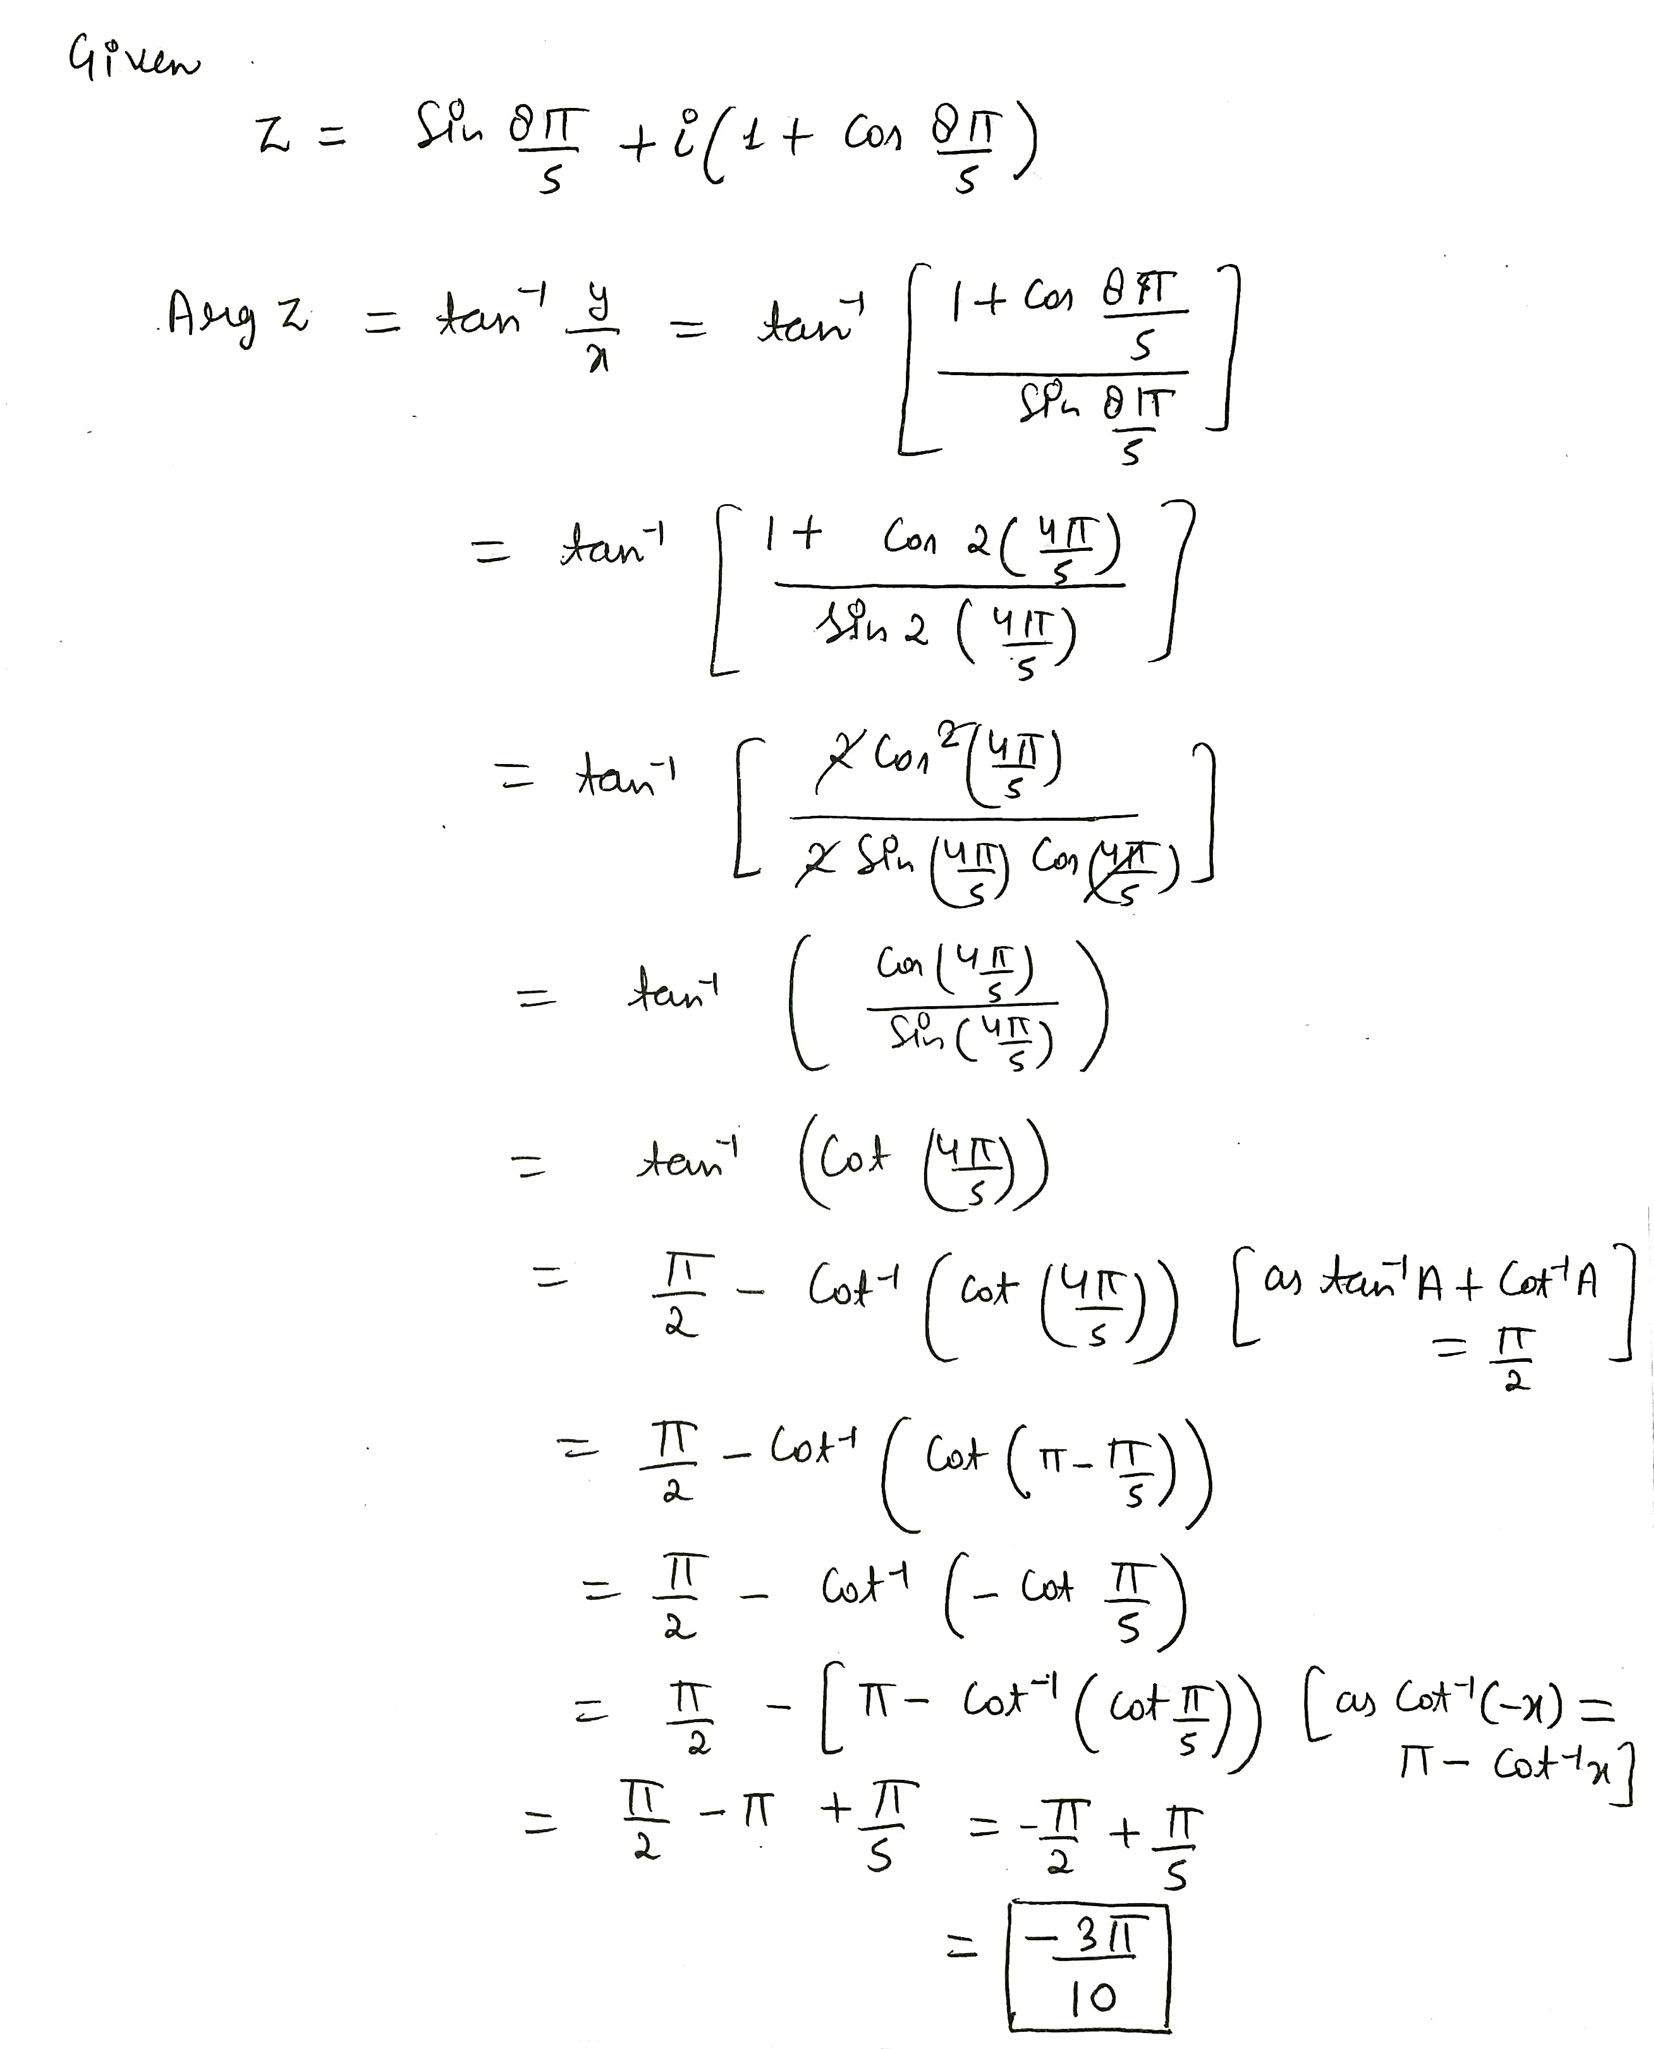 Given
z = Sin 8π/5 + i(1 + Cos 8π/5)
Arg z = tan⁻¹ y/x = tan⁻¹ [(1 + Cos 8π/5)/(Sin 8π/5)]
= tan⁻¹ [(1 + Cos 2(4π/5))/(Sin 2(4π/5))]
= tan⁻¹ [(2 Cos²(4π/5))/(2 Sin(4π/5) Cos(4π/5))]
= tan⁻¹ (Cos(4π/5)/Sin(4π/5))
= tan⁻¹ (Cot (4π/5))
= π/2 - Cot⁻¹ (Cot (4π/5)) [as tan⁻¹A + Cot⁻¹A = π/2]
= π/2 - Cot⁻¹ (Cot (π - π/5))
= π/2 - Cot⁻¹ (- Cot π/5)
= π/2 - [π - Cot⁻¹ (Cot π/5)) [as Cot⁻¹(-x) = π - Cot⁻¹x]
= π/2 - π + π/5 = -π/2 + π/5
= -3π/10